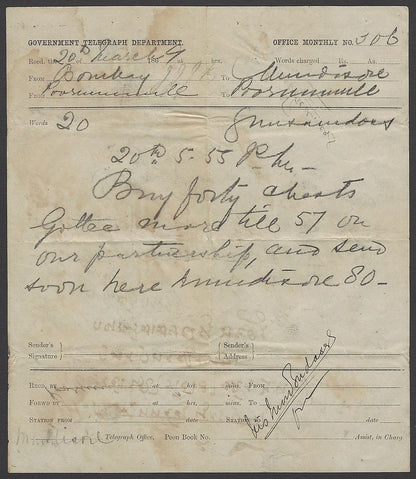 GOVERNMENT TELEGRAPH DEPARTMENT. OFFICE MONTHLY NO. 306
Recd. the 20th March 186 Words charged Rs. As.
From Bombay To Mundisore
From Poorunmull To Poorunmull
Words 20
20th 5-55 P.m.
Buy forty chests
Gottee more till 57 on
our partnership, and send
soon here Mundisore 80-
Sender's Signature } Sender's Address }
RECD. BY at hrs. mins. FROM
FORWD BY at hrs. mins. TO
STATION FROM date STATION date
Mundisore Telegraph Office, Peon Book No. Assist. in Charge